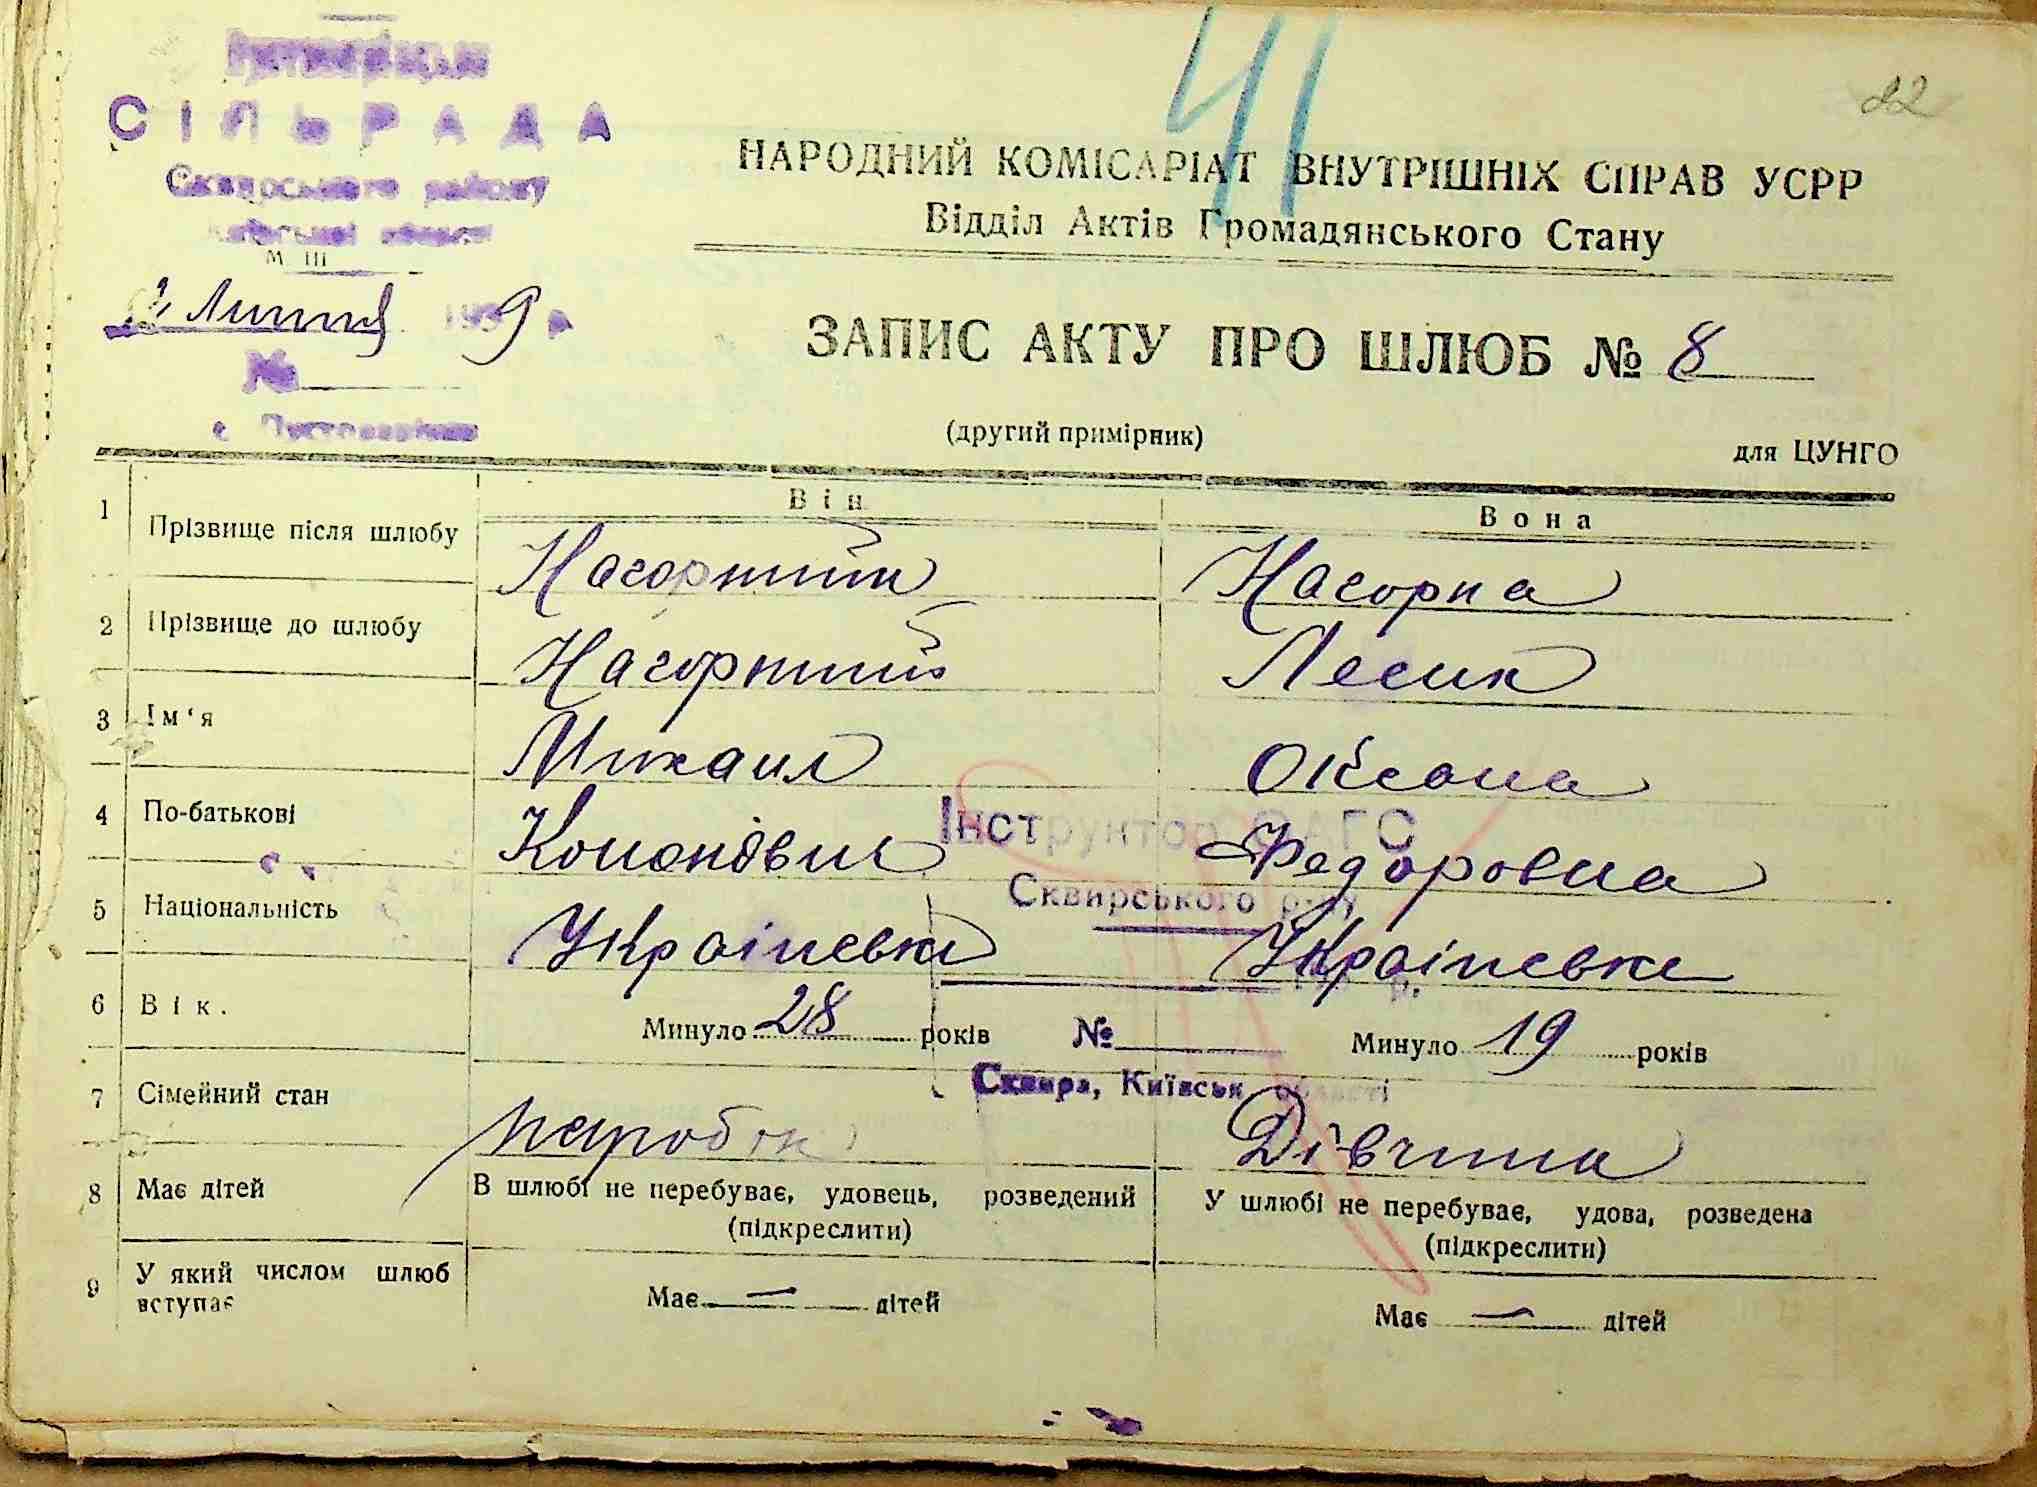 41
22
СІЛЬРАДА
Сквирського району
Київської області
Липня 1939 р
№
с. Пустоварівка
НАРОДНИЙ КОМІСАРІАТ ВНУТРІШНІХ СПРАВ УСРР
Відділ Актів Громадянського Стану
ЗАПИС АКТУ ПРО ШЛЮБ № 8
(другий примірник)
для ЦУНГО
Він
Вона
1 Прізвище після шлюбу Нагорний Нагорна
2 Прізвище до шлюбу Нагорний Лесик
3 Ім‘я Михаил Оксана
4 По-батькові Кононович Федоровна
Інструктор ЗАГС
Сквирського р-ну
5 Національність Украінсвке Украінсвке
р.
6 Вік. Минуло 28 років Минуло 19 років
№
Сквира, Київськ області
7 Сімейний стан паробок Дівчина
8 Має дітей В шлюбі не перебуває, удовець, розведений У шлюбі не перебуває, удова, розведена
(підкреслити) (підкреслити)
9 У який числом шлюб
вступає
Має — дітей Має — дітей